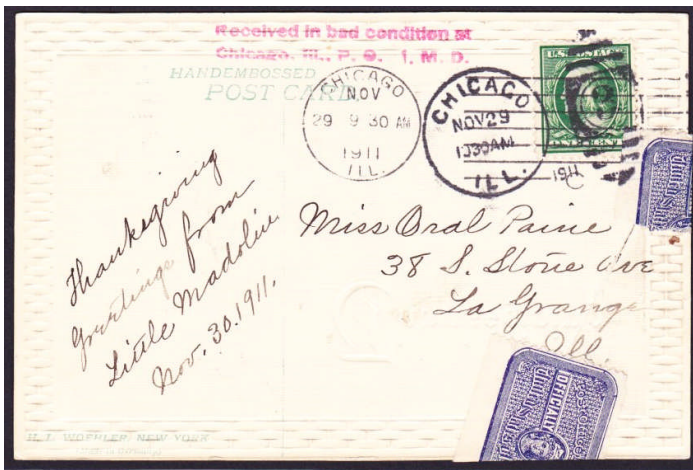 Received in bad condition at
Chicago, Ill., P. O. I. M. D.
HANDEMBOSSED
POST CARD
CHICAGO
NOV
29 9 30 AM
1911
ILL.
CHICAGO
NOV 29
1030AM
ILL.
1911
U.S. POSTAGE
Thanksgiving
Greetings from
Little Madoline
Nov. 30. 1911.
Miss Oral Paine
38 S. Stone Ave
La Grange
Ill.
OFFICIALLY
United States
H. I. WOEHLER, NEW YORK